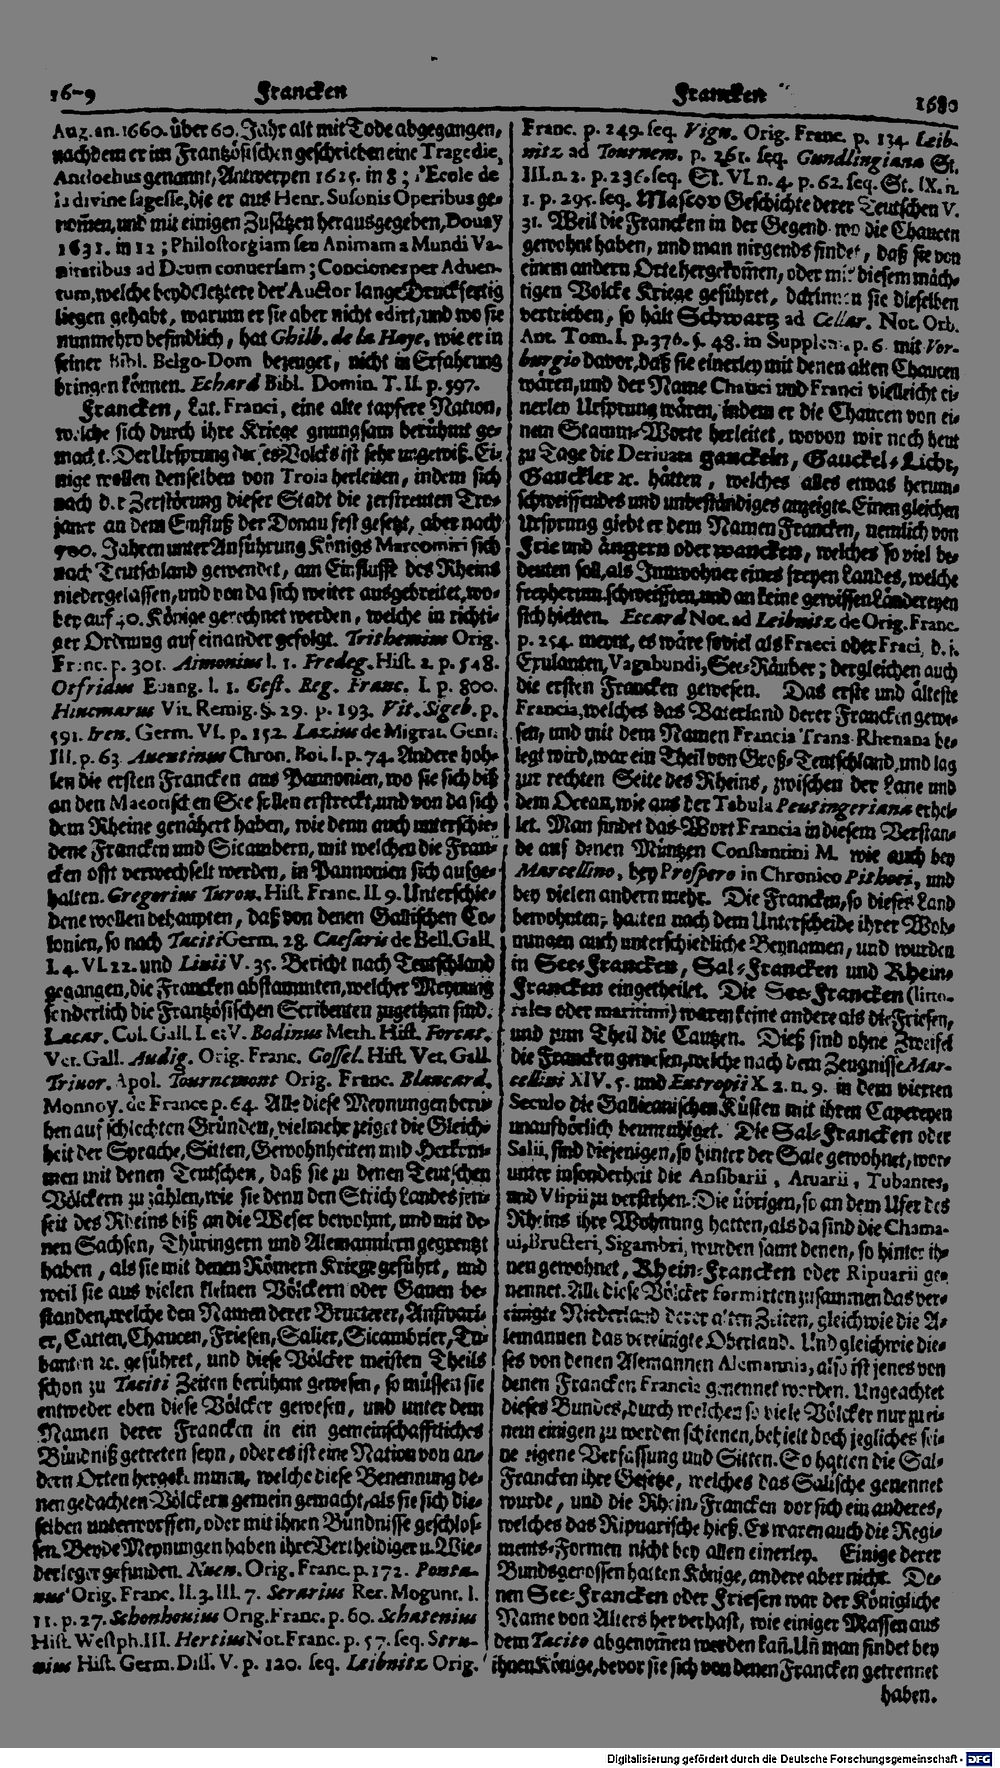 Francken
Francken
1680
Aug. an. 1660. über 60. Jahr alt mit Tode abgegangen,
nachdem er im Frantzösischen geschrieben eine Tragedie,
Antiochus genannt, Antwerpen 1625. in 8; l'Ecole de
la divine sagesse, die er aus Henr. Susonis Operibus ge-
nom̃en, und mit einigen Zusätzen herausgegeben, Douay
1631. in 12; Philostorgiam seu Animam a Mundi Va-
nitatibus ad Deum conversam; Conciones per Adven-
tum, welche beyde letztere der Auctor lange Druckfertig
liegen gehabt, warum er sie aber nicht edirt, und wo sie
nunmehro befindlich, hat Ghilb. de la Haye, wie er in
seiner Bibl. Belgo-Dom bezeuget, nicht in Erfahrung
bringen können. Echard Bibl. Domin. T. II. p. 597.
Francken, Lat. Franci, eine alte tapfere Nation,
welche sich durch ihre Kriege gnungsam berühmt ge-
macht. Der Ursprung dieses Volcks ist sehr ungewiß. Ei-
nige wollen denselben von Troia herleiten, indem sich
nach der Zerstörung dieser Stadt die zerstreuten Tro-
janer an dem Einfluß der Donau fest gesetzt, aber nach
700. Jahren unter Anführung Königs Marcomiri sich
nach Teutschland gewendet, am Einflusse des Rheins
niedergelassen, und von da sich weiter ausgebreitet, wo-
bey auf 40. Könige gerechnet werden, welche in richti-
ger Ordnung auf einander gefolgt. Trithemius Orig.
Franc. p. 301. Aimonius l. 1. Fredeg. Hist. 2. p. 548.
Otfridus Euang. l. 1. Gest. Reg. Franc. I. p. 800.
Hincmarus Vit. Remig. §. 29. p. 193. Vit. Sigeb. p.
591. Iren. Germ. VI. p. 152. Lazius de Migrat. Gent.
III. p. 63. Auentinus Chron. Boi. I. p. 74. Andere hoh-
len die ersten Francken aus Pannonien, wo sie sich biß
an den Maeotischen See sollen erstreckt, und von da sich
dem Rheine genähert haben, wie denn auch unterschie-
dene Francken und Sicambern, mit welchen die Fran-
cken offt verwechselt werden, in Pannonien sich aufge-
halten. Gregorius Turon. Hist. Franc. II. 9. Unterschie-
dene wollen behaupten, daß von denen Gallischen Co-
lonien, so nach Taciti Germ. 28. Caesaris de Bell. Gall.
I. 4. VI. 22. und Liuii V. 35. Bericht nach Teutschland
gegangen, die Francken abstammten, welcher Meynung
sonderlich die Frantzösischen Scribenten zugethan sind.
Lacar. Col. Gall. I. et V. Bodinus Meth. Hist. Forcat.
Vet. Gall. Audig. Orig. Franc. Gossel. Hist. Vet. Gall.
Triuor. Apol. Tournemont Orig. Franc. Blancard.
Monnoy. de France p. 64. Alle diese Meynungen beru-
hen auf schlechten Gründen, vielmehr zeiget die Gleich-
heit der Sprache, Sitten, Gewohnheiten und Herkom-
men mit denen Teutschen, daß sie zu denen Teutschen
Völckern zu zählen, wie sie denn den Strich Landes jen-
seit des Rheins biß an die Weser bewohnt, und mit de-
nen Sachsen, Thüringern und Alemanniern gegrentzt
haben, als sie mit denen Römern Kriege geführt, und
weil sie aus vielen kleinen Völckern oder Gauen be-
standen, welche den Namen derer Bructerer, Ansivari-
er, Catten, Chaucen, Friesen, Salier, Sicambrier, Tu-
banten ꝛc. geführet, und diese Völcker meisten Theils
schon zu Taciti Zeiten berühmt gewesen, so müssen sie
entweder eben diese Völcker gewesen, und unter dem
Namen derer Francken in ein gemeinschafftliches
Bündniß getreten seyn, oder es ist eine Nation von an-
dern Orten hergekommen, welche diese Benennung de-
nen gedachten Völckern gemein gemacht, als sie sich die-
selben unterworffen, oder mit ihnen Bündnisse geschlos-
sen. Beyde Meynungen haben ihre Vertheidiger u. Wie-
derleger gefunden. Nuen. Orig. Franc. p. 172. Ponta-
nus Orig. Franc. II. 3. III. 7. Serarius Rer. Mogunt. l.
11. p. 27. Schonhouius Orig. Franc. p. 60. Schatenius
Hist. Westph. III. Hertius Not. Franc. p. 57. seq. Stru-
uius Hist. Germ. Diss. V. p. 120. seq. Leibnitz Orig.
Franc. p. 249. seq. Vign. Orig. Franc. p. 134. Leib-
nitz ad Tournem. p. 261. seq. Gundlingiana St.
III. n. 2. p. 236. seq. St. VI. n. 4. p. 62. seq. St. IX. n.
1. p. 295. seq. Mascov Geschichte derer Teutschen V.
31. Weil die Francken in der Gegend, wo die Chaucen
gewohnt haben, und man nirgends findet, daß sie von
einem andern Orte hergekom̃en, oder mit diesem mäch-
tigen Volcke Kriege geführet, darinnen sie dieselben
vertrieben, so hält Schwartz ad Cellar. Not. Orb.
Ant. Tom. I. p. 376. §. 48. in Supplem. p. 6. mit Vor-
burgio davor, daß sie einerley mit denen alten Chaucen
wären, und der Name Chauci und Franci vielleicht ei-
nerley Ursprung wären, indem er die Chaucen von ei-
nem Stamm-Worte herleitet, wovon wir noch heut
zu Tage die Derivata gauckeln, Gauckel-Licht,
Gauckler ꝛc. hätten, welches alles etwas herum-
schweiffendes und unbeständiges anzeigte. Einen gleichen
Ursprung giebt er dem Namen Francken, nemlich von
Frie und ängern oder wancken, welches so viel be-
deuten soll, als Innwohner eines freyen Landes, welche
frey herum schweifften, und an keine gewissen Ländereyen
sich hielten. Eccard Not. ad Leibnitz de Orig. Franc.
p. 254. meynt, es wäre soviel als Fracci oder Fraci, d. i.
Exulanten, Vagabundi, See-Räuber; dergleichen auch
die ersten Francken gewesen. Das erste und älteste
Francia, welches das Vaterland derer Francken gewe-
sen, und mit dem Namen Francia Trans-Rhenana be-
legt wird, war ein Theil von Groß-Teutschland, und lag
zur rechten Seite des Rheins, zwischen der Lane und
dem Ocean, wie aus der Tabula Peutingeriana erhel-
let. Man findet das Wort Francia in diesem Verstan-
de auf denen Müntzen Constantini M. wie auch bey
Marcellino, bey Prospero in Chronico Pithoei, und
bey vielen andern mehr. Die Francken, so dieses Land
bewohnten, hatten nach dem Unterscheide ihrer Woh-
nungen auch unterschiedliche Beynamen, und wurden
in See-Francken, Sal-Francken und Rhein-
Francken eingetheilet. Die See-Francken (litto-
rales oder maritimi) waren keine andere als die Friesen,
und zum Theil die Cautzen. Dieß sind ohne Zweifel
die Francken gewesen, welche nach dem Zeugnisse Mar-
cellini XIV. 5. und Eutropii X. 2. n. 9. in dem vierten
Seculo die Gallicanischen Küsten mit ihren Capereyen
unaufhörlich beunruhiget. Die Sal-Francken oder
Salii, sind diejenigen, so hinter der Sale gewohnet, wor-
unter insonderheit die Ansibarii, Atuarii, Tubantes,
und Vsipii zu verstehen. Die übrigen, so an dem Ufer des
Rheins ihre Wohnung hatten, als da sind die Chama-
ui, Bructeri, Sigambri, wurden samt denen, so hinter ih-
nen gewohnet, Rhein-Francken oder Ripuarii ge-
nennet. Alle diese Völcker formirten zusammen das ver-
einigte Niederland derer alten Zeiten, gleichwie die A-
lemannen das vereinigte Oberland. Und gleichwie die-
ses von denen Alemannen Alemannia, also ist jenes von
denen Francken Francia genennet worden. Ungeachtet
dieses Bundes, durch welchen so viele Völcker nur zu ei-
nem einigen zu werden schienen, behielt doch jegliches sei-
ne eigene Verfassung und Sitten. So hatten die Sal-
Francken ihre Gesetze, welches das Salische genennet
wurde, und die Rhein-Francken vor sich ein anderes,
welches das Ripuarische hieß. Es waren auch die Regi-
ments-Formen nicht bey allen einerley. Einige derer
Bundsgenossen hatten Könige, andere aber nicht. De-
nen See-Francken oder Friesen war der Königliche
Name von Alters her verhast, wie einiger Massen aus
dem Tacito abgenom̃en werden kañ. Uñ man findet bey
ihnen Könige, bevor sie sich von denen Francken getrennet
haben.
Digitalisierung gefördert durch die Deutsche Forschungsgemeinschaft - DFG